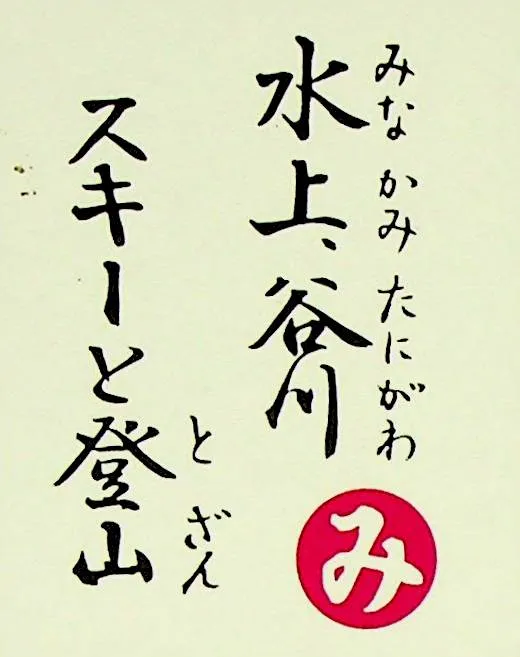 水上、谷川
みなかみたにがわ
スキーと登山
とざん
み